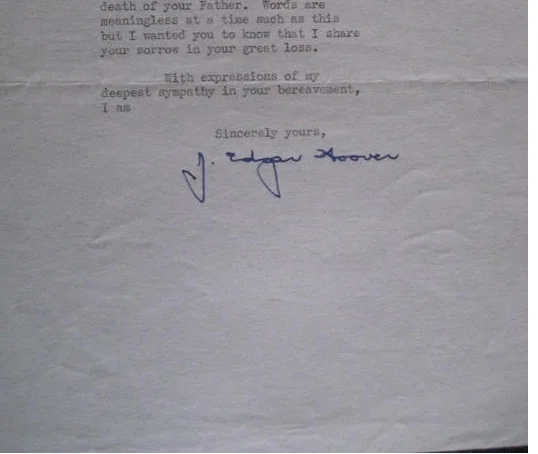 death of your Father. Words are
meaningless at a time such as this
but I wanted you to know that I share
your sorrow in your great loss.
With expressions of my
deepest sympathy in your bereavement,
I am
Sincerely yours,
J. Edgar Hoover